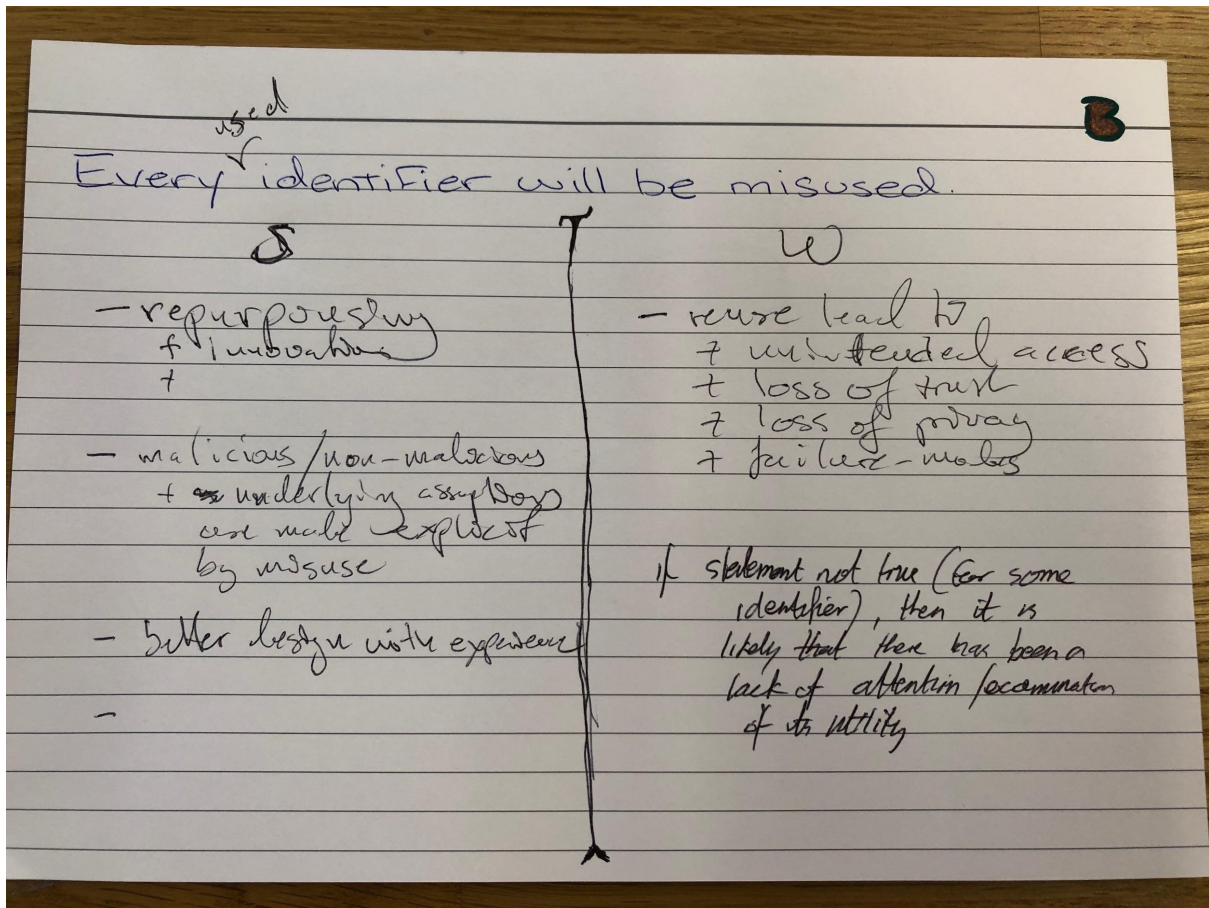 B
used
Every identifier will be misused.
S
- repurposing
+ innovation
+
- malicious/non-malicious
+ underlying assumptions
are made explicit
by misuse
- better design with experience
-
W
- reuse lead to
+ unintended access
+ loss of trust
+ loss of privacy
+ failure-modes
if statement not true (for some
identifier), then it is
likely that there has been a
lack of attention/examination
of its utility